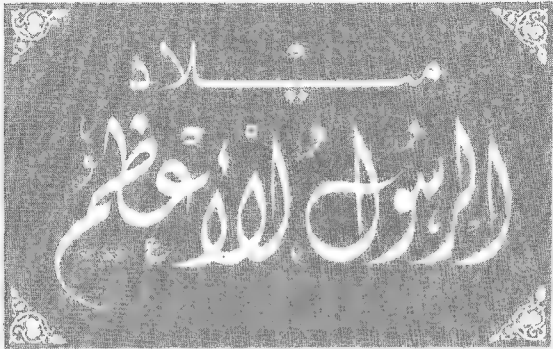 ميلاد
الرسول الأعظم